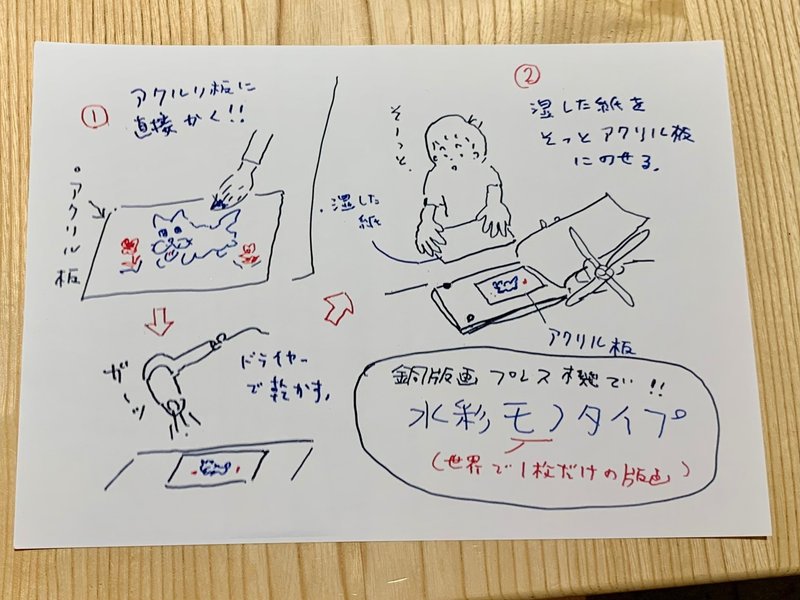 ①
アクルリ板に
直接かく!!
アクリル板
ガーッ
ドライヤー
で乾かす。
②
湿した紙を
そっとアクリル板
にのせる。
そーっと。
湿した
紙
アクリル板
銅版画プレス機で!!
水彩モノタイプ
(世界で1枚だけの版画)